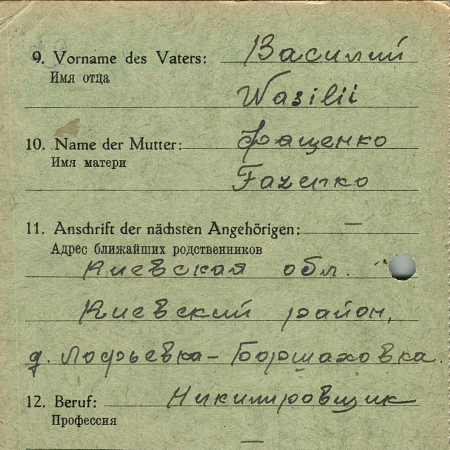 9. Vorname des Vaters: Василий
Имя отца
Wasilii
10. Name der Mutter: Фащенко
Имя матери
Fazenko
11. Anschrift der nächsten Angehörigen: —
Адрес ближайших родственников
Киевская обл.
Киевский район,
д. Софьевка-Борщаховка.
12. Beruf: Никилировщик
Профессия
—